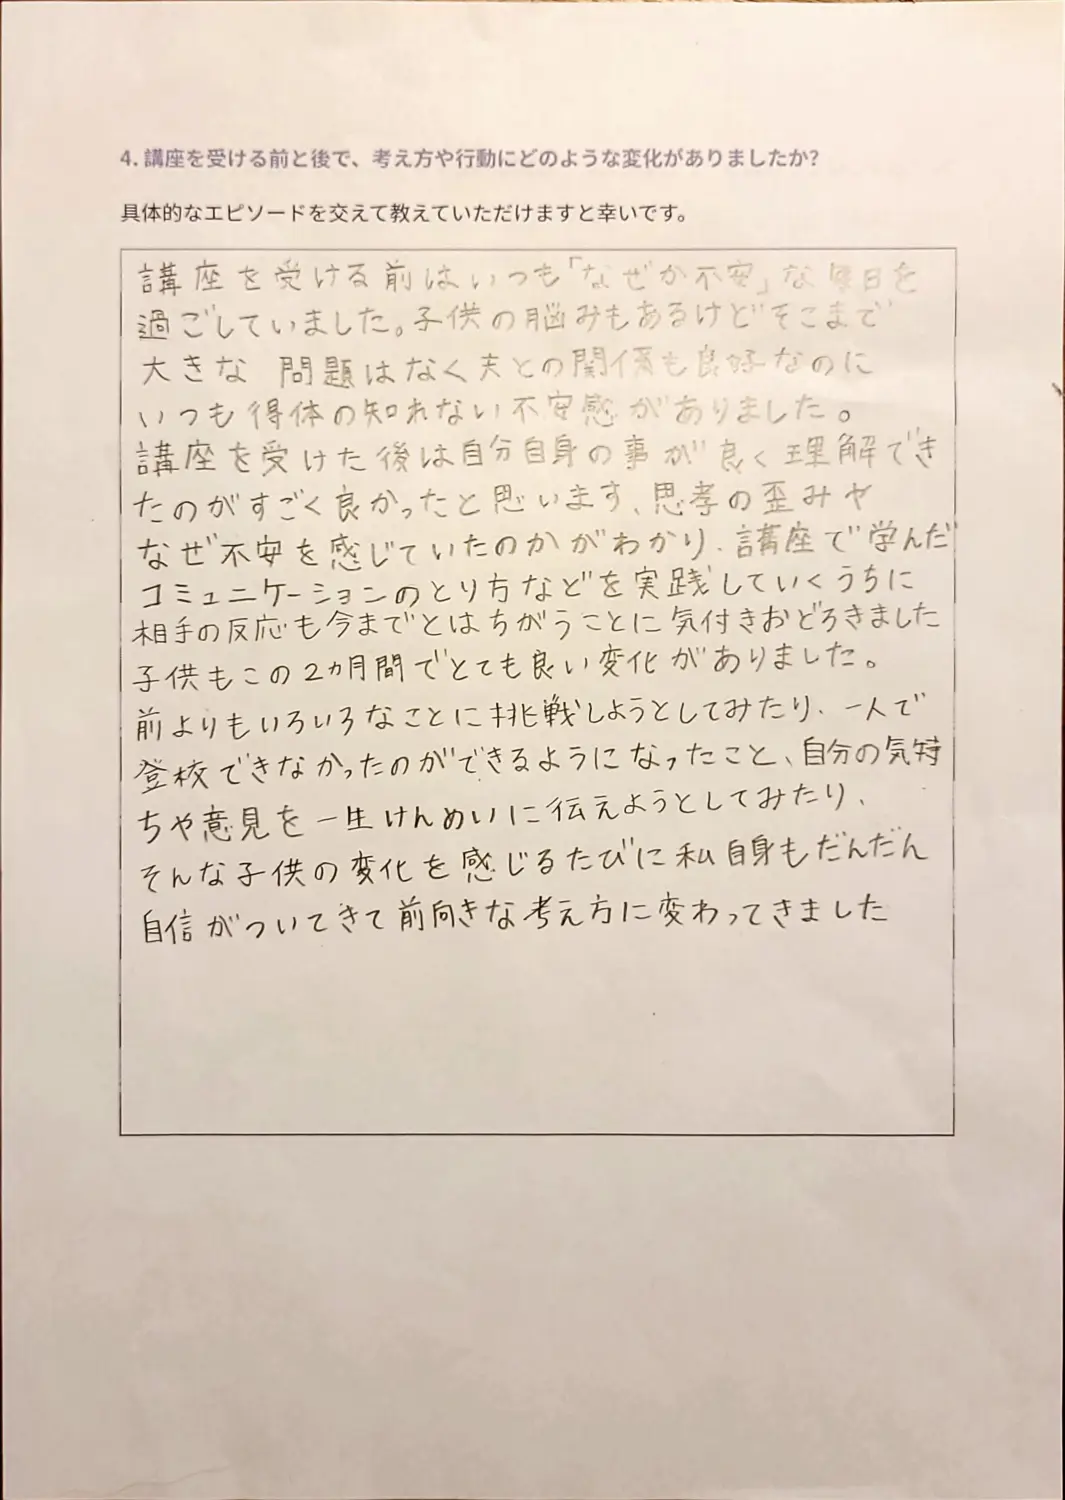 4. 講座を受ける前と後で、考え方や行動にどのような変化がありましたか?
具体的なエピソードを交えて教えていただけますと幸いです。
講座を受ける前はいつも「なぜか不安」な毎日を
過ごしていました。子供の脳みもあるけどそこまで
大きな 問題はなく夫との関係も良好なのに
いつも得体の知れない不安感がありました。
講座を受けた後は自分自身の事が良く理解でき
たのがすごく良かったと思います、思考の歪みや
なぜ不安を感じていたのかがわかり、講座で学んだ
コミュニケーションのとり方などを実践していくうちに
相手の反応も今までとはちがうことに気付きおどろきました
子供もこの2カ月間でとても良い変化がありました。
前よりもいろいろなことに挑戦しようとしてみたり、一人で
登校できなかったのができるようになったこと、自分の気持
ちや意見を一生けんめいに伝えようとしてみたり、
そんな子供の変化を感じるたびに私自身もだんだん
自信がついてきて前向きな考え方に変わってきました